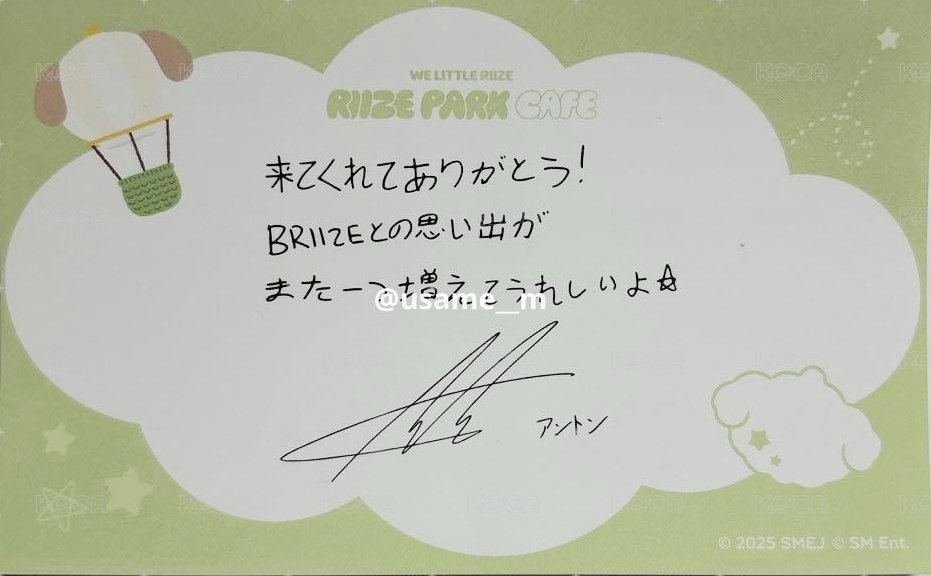 WE LITTLE RIIZE
RIIZE PARK CAFE
来てくれてありがとう!
BRIIZEとの思い出が
また一つ増えてうれしいよ☆
@usame__m
アントン
KOCA
© 2025 SMEJ © SM Ent.